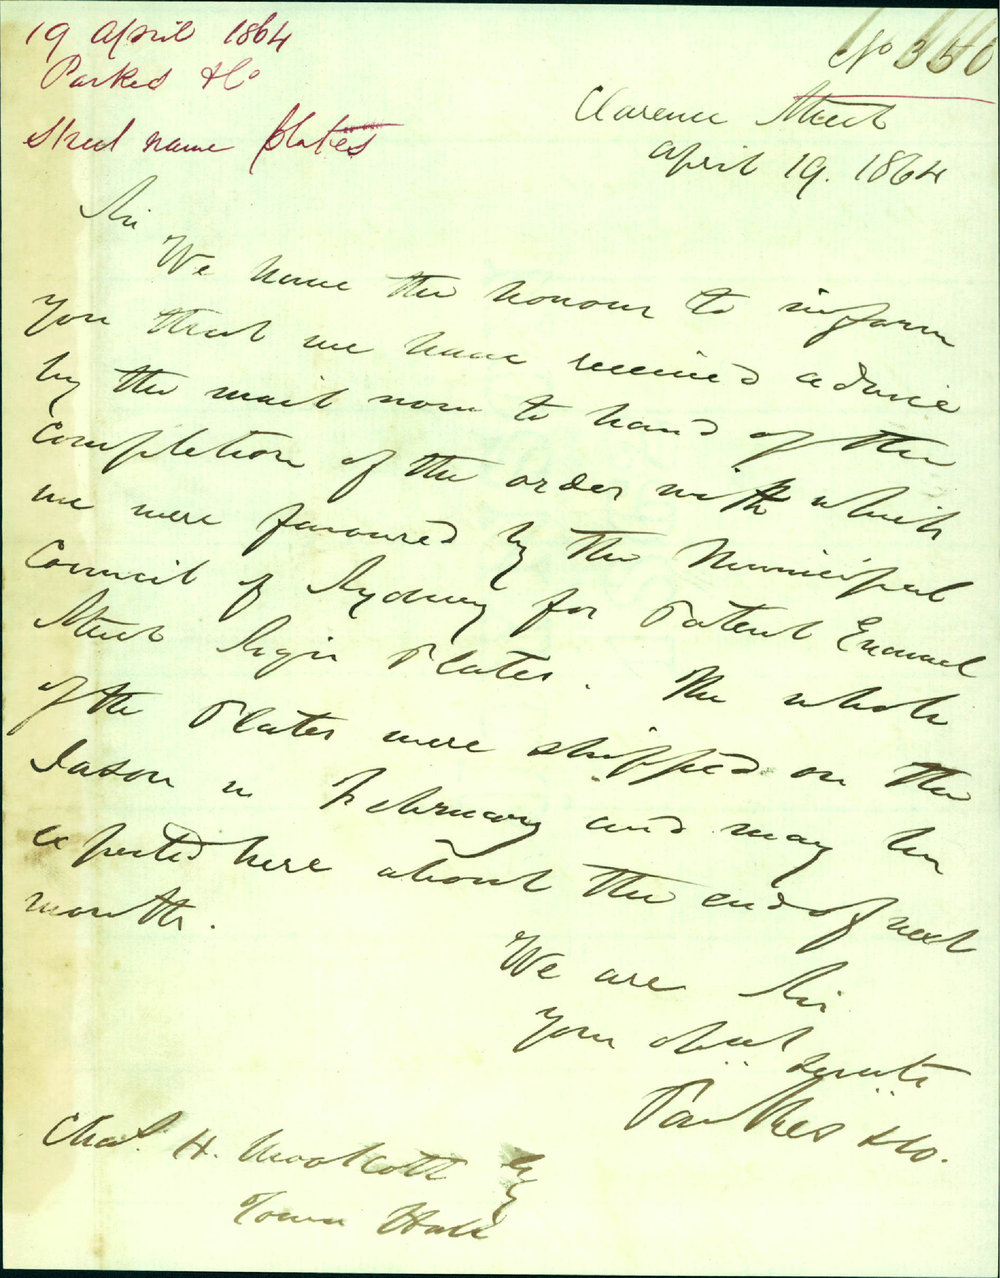 19 April 1864
Parkes & Co
Street name plates
No 350
Clarence Street
April 19. 1864
Sir
We have the honour to inform
you that we have received advice
by the mail now to hand of the
completion of the order with which
we were favoured by the Municipal
Council of Sydney for Patent Enamel
Street Sign Plates. The whole
of the Plates were shipped on the
Jason in February and may be
expected here about the end of next
month.
We are Sir
your obedt servts
Parkes & Co.
Chas. H. Woolcott Esq
Town Hall